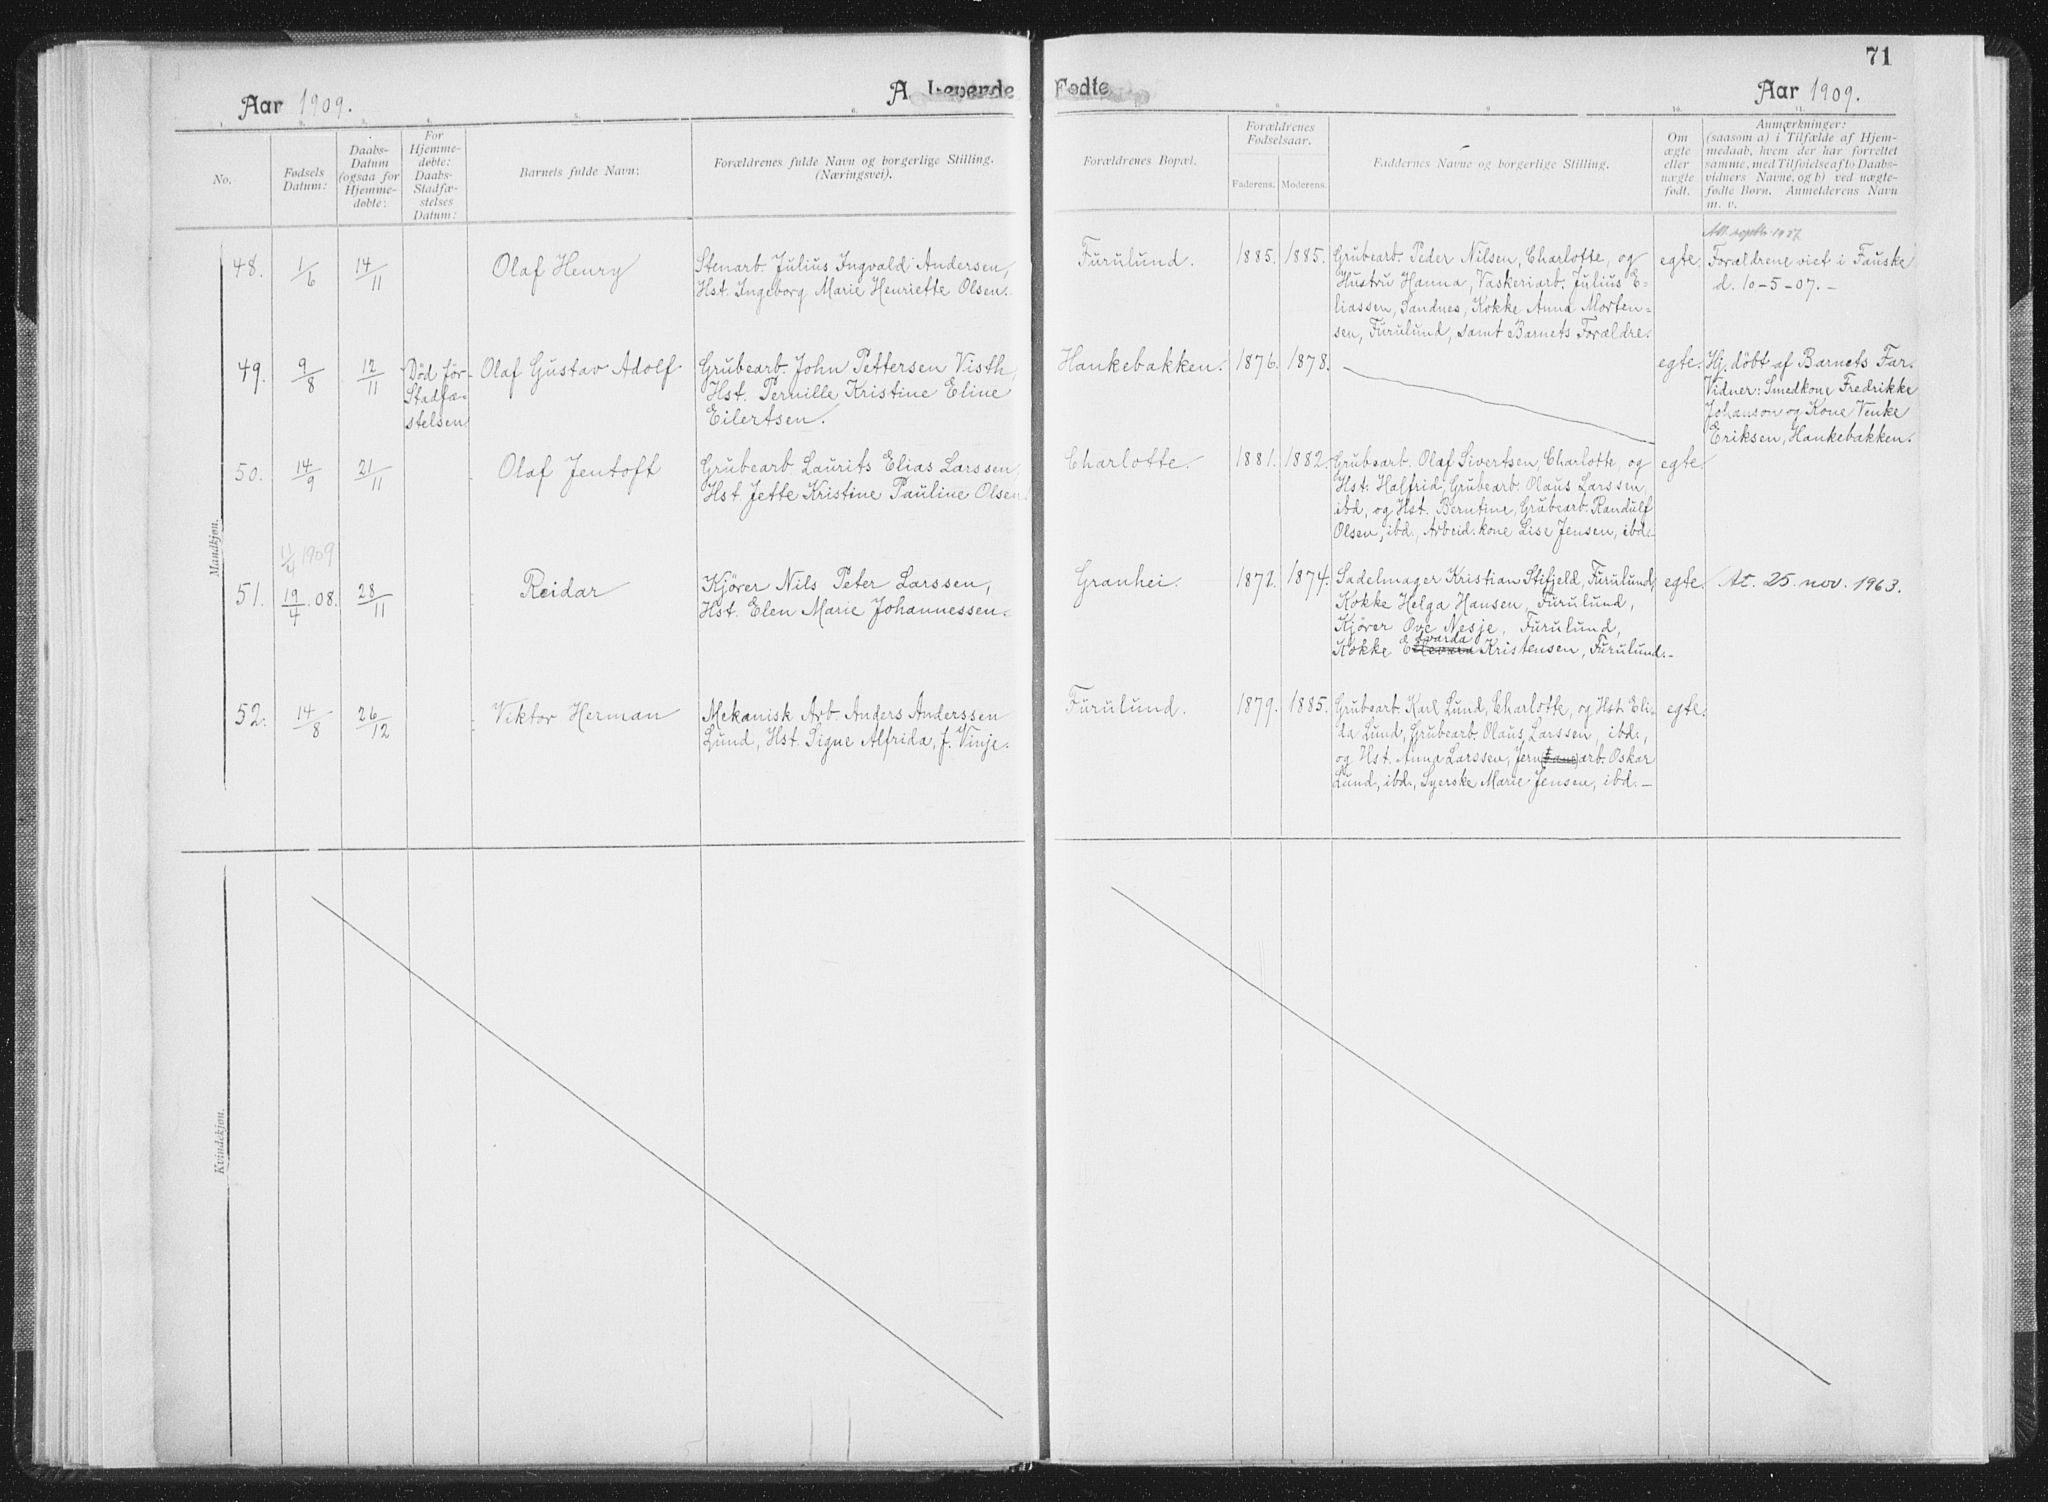 71
Aar 1909.
A. Levende Fødte
Aar 1909.
1. 2. 3. 4. 5. 6. 8. 9. 10. 11.
No.
Fødsels Datum:
Daabs-Datum (ogsaa for Hjemme-døbte:
For Hjemme-døbte: Daabs-Stadfæ-stelses Datum:
Barnets fulde Navn:
Forældrenes fulde Navn og borgerlige Stilling. (Næringsvei).
Forældrenes Bopæl.
Forældrenes Fødselsaar.
Faderens. Moderens.
Faddernes Navne og borgerlige Stilling.
Om ægte eller uægte født.
Anmærkninger:
(saasom a) i Tilfælde af Hjem-
medaab, hvem der har forrettet
samme, med Tilføielse af to Daabs-
vidners Navne, og b) ved uægte-
fødte Børn. Anmelderens Navn
m. v.
Mandkjøn.
48. 1/6 14/11 Olaf Henry
Stenarb. Julius Ingvald Andersen,
Hst. Ingeborg Marie Henriette Olsen.
Furulund. 1885. 1885.
Grubearb. Peder Nilsen, Charlotte, og
Hustru Hanna, Vaskeriarb. Julius E-
liassen, Sandnes, Kokke Anna Morten-
sen, Furulund, samt Barnets Forældre.
egte.
Forældrene viet i Fauske
d. 10-5-07.-
49. 9/8 12/11
Død før
Stadfæ-
stelsen
Olaf Gustav Adolf
Grubearb. John Pettersen Visth,
Hst. Pernille Kristine Eline
Eilertsen.
Hankebakken. 1876. 1878.
egte.
Hj. döbt af Barnets Far.
Vidner: Smedkone Fredrikke
Johanson og Kone Venke
Eriksen, Hankebakken.
50. 14/9 21/11 Olaf Jentoft
Grubearb. Laurits Elias Larssen,
Hst. Jette Kristine Pauline Olsen
Charlotte. 1881. 1882.
Grubearb. Olaf Sivertsen, Charlotte, og
Hst. Halfrid, Grubearb. Olaus Larssen,
ibd, og Hst. Berntine, Grubearb. Randulf
Olsen, ibd., Arbeid.kone Lise Jensen, ibd.-
egte.
11/4 1909
51. 19/4.08. 28/11 Reidar
Kjörer Nils Peter Larssen,
Hst. Elen Marie Johannessen.
Granhei. 1872. 1874.
Sadelmager Kristian Stifjeld, Furulund,
Kokke Helga Hansen, Furulund,
Kjörer Ove Nesje, Furulund,
Kokke Edvarda Kristensen, Furulund.-
egte.
At. 25. nov. 1963.
52. 14/8 26/12 Viktor Herman
Mekanisk Arb. Anders Anderssen
Lund, Hst. Signe Alfrida, f. Vinje.
Furulund. 1879. 1885.
Grubearb. Karl Lund, Charlotte, og Hst. Eli-
da Lund, Grubearb. Olaus Larssen, ibd.,
og Hst. Anna Larssen, Jern(bane)arb. Oskar
Lund, ibd., Syerske Marie Jensen, ibd.-
egte.
Kvindekjøn.